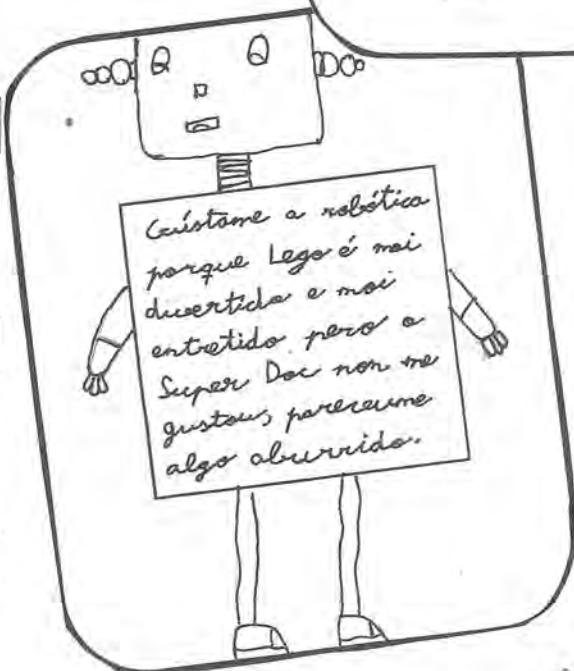 Gústame a robótica
porque Lego é moi
divertido e moi
entretido pero o
Super Doc non me
gustou, pareceume
algo aburrido.